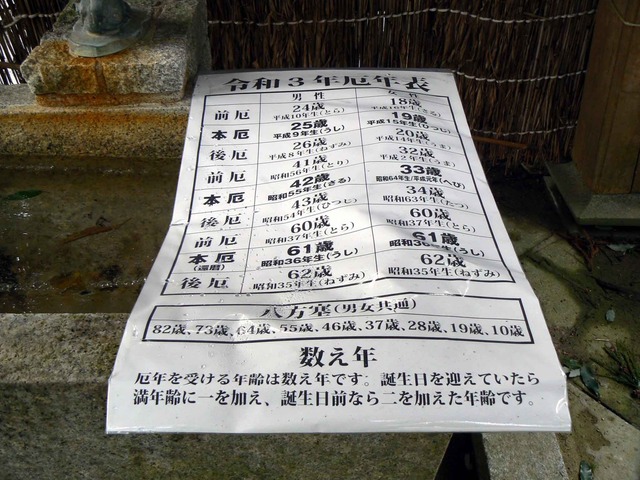 令和3年厄年表
男性 女性
前厄 24歳 18歳
平成10年生(とら) 平成16年生(さる)
本厄 25歳 19歳
平成9年生(うし) 平成15年生(ひつじ)
後厄 26歳 20歳
平成8年生(ねずみ) 平成14年生(うま)
前厄 41歳 32歳
昭和56年生(とり) 平成2年生(うま)
本厄 42歳 33歳
昭和55年生(さる) 昭和64年生/平成元年(へび)
後厄 43歳 34歳
昭和54年生(ひつじ) 昭和63年生(たつ)
前厄 60歳 60歳
昭和37年生(とら) 昭和37年生(とら)
本厄 61歳 61歳
(還暦) 昭和36年生(うし) 昭和36年生(うし)
後厄 62歳 62歳
昭和35年生(ねずみ) 昭和35年生(ねずみ)
八方塞(男女共通)
82歳、73歳、64歳、55歳、46歳、37歳、28歳、19歳、10歳
数え年
厄年を受ける年齢は数え年です。誕生日を迎えていたら
満年齢に一を加え、誕生日前なら二を加えた年齢です。